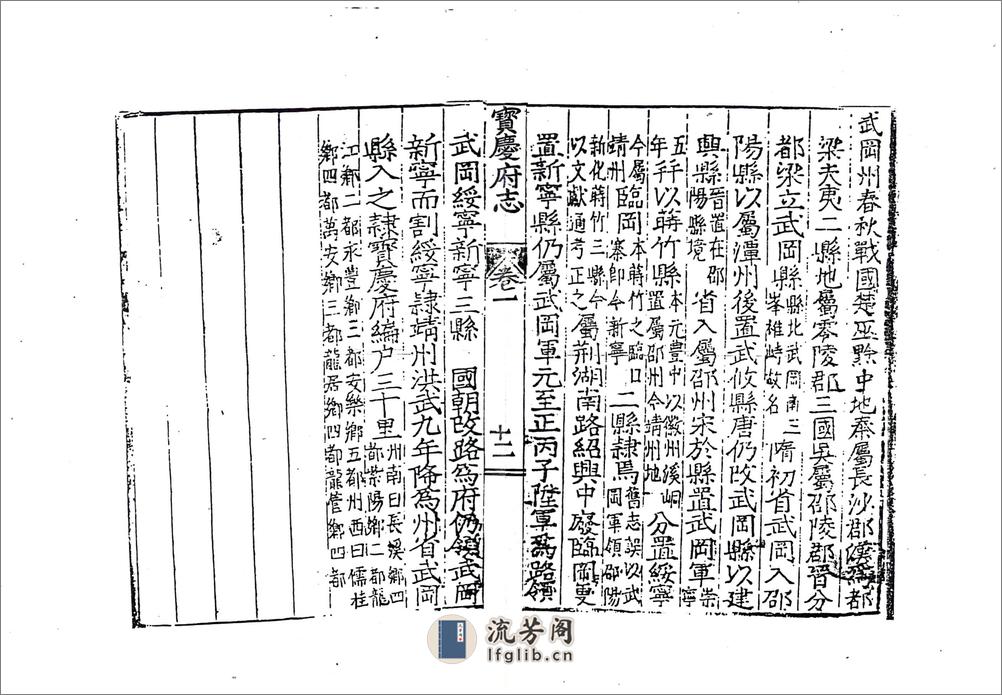 武岡州春秋戰國楚巫黔中地秦屬長沙郡漢為都
梁夫夷二縣地屬零陵郡三國吳屬邵陵郡晉分
都梁立武岡縣縣北武岡南三
峯雄峙故名隋初省武岡入邵
陽縣以屬潭州後置武攸縣唐仍改武岡縣以建
興縣晉置在邵
陽縣境省入屬邵州宋於縣置武岡軍崇
寧
五千以蒔竹縣本元豊中以徽州溪峒
年
置屬邵州今靖州地分置綏寧
今屬
靖州臨岡本蒔竹之臨口
寨即今新寧二縣隸焉舊志誤以武
岡軍領邵陽
新化蒔竹三縣今
以文獻通考正之屬荆湖南路紹興中廢臨岡更
置新寧縣仍屬武岡軍元至正丙子陞軍為路領
寶慶府志
卷一
十二
武岡綏寧新寧三縣 國朝改路為府仍領武岡
新寧而割綏寧隷靖州洪武九年降為州省武岡
縣入之隸寶慶府編户三十里州南曰長溪鄉四
都紫陽鄉二都龍
江鄉二都永豊鄉三都安樂鄉五都州西曰儒桂
鄉四都萬安鄉三都龍居鄉四都龍管鄉四都
流芳阁
lfglib.cn